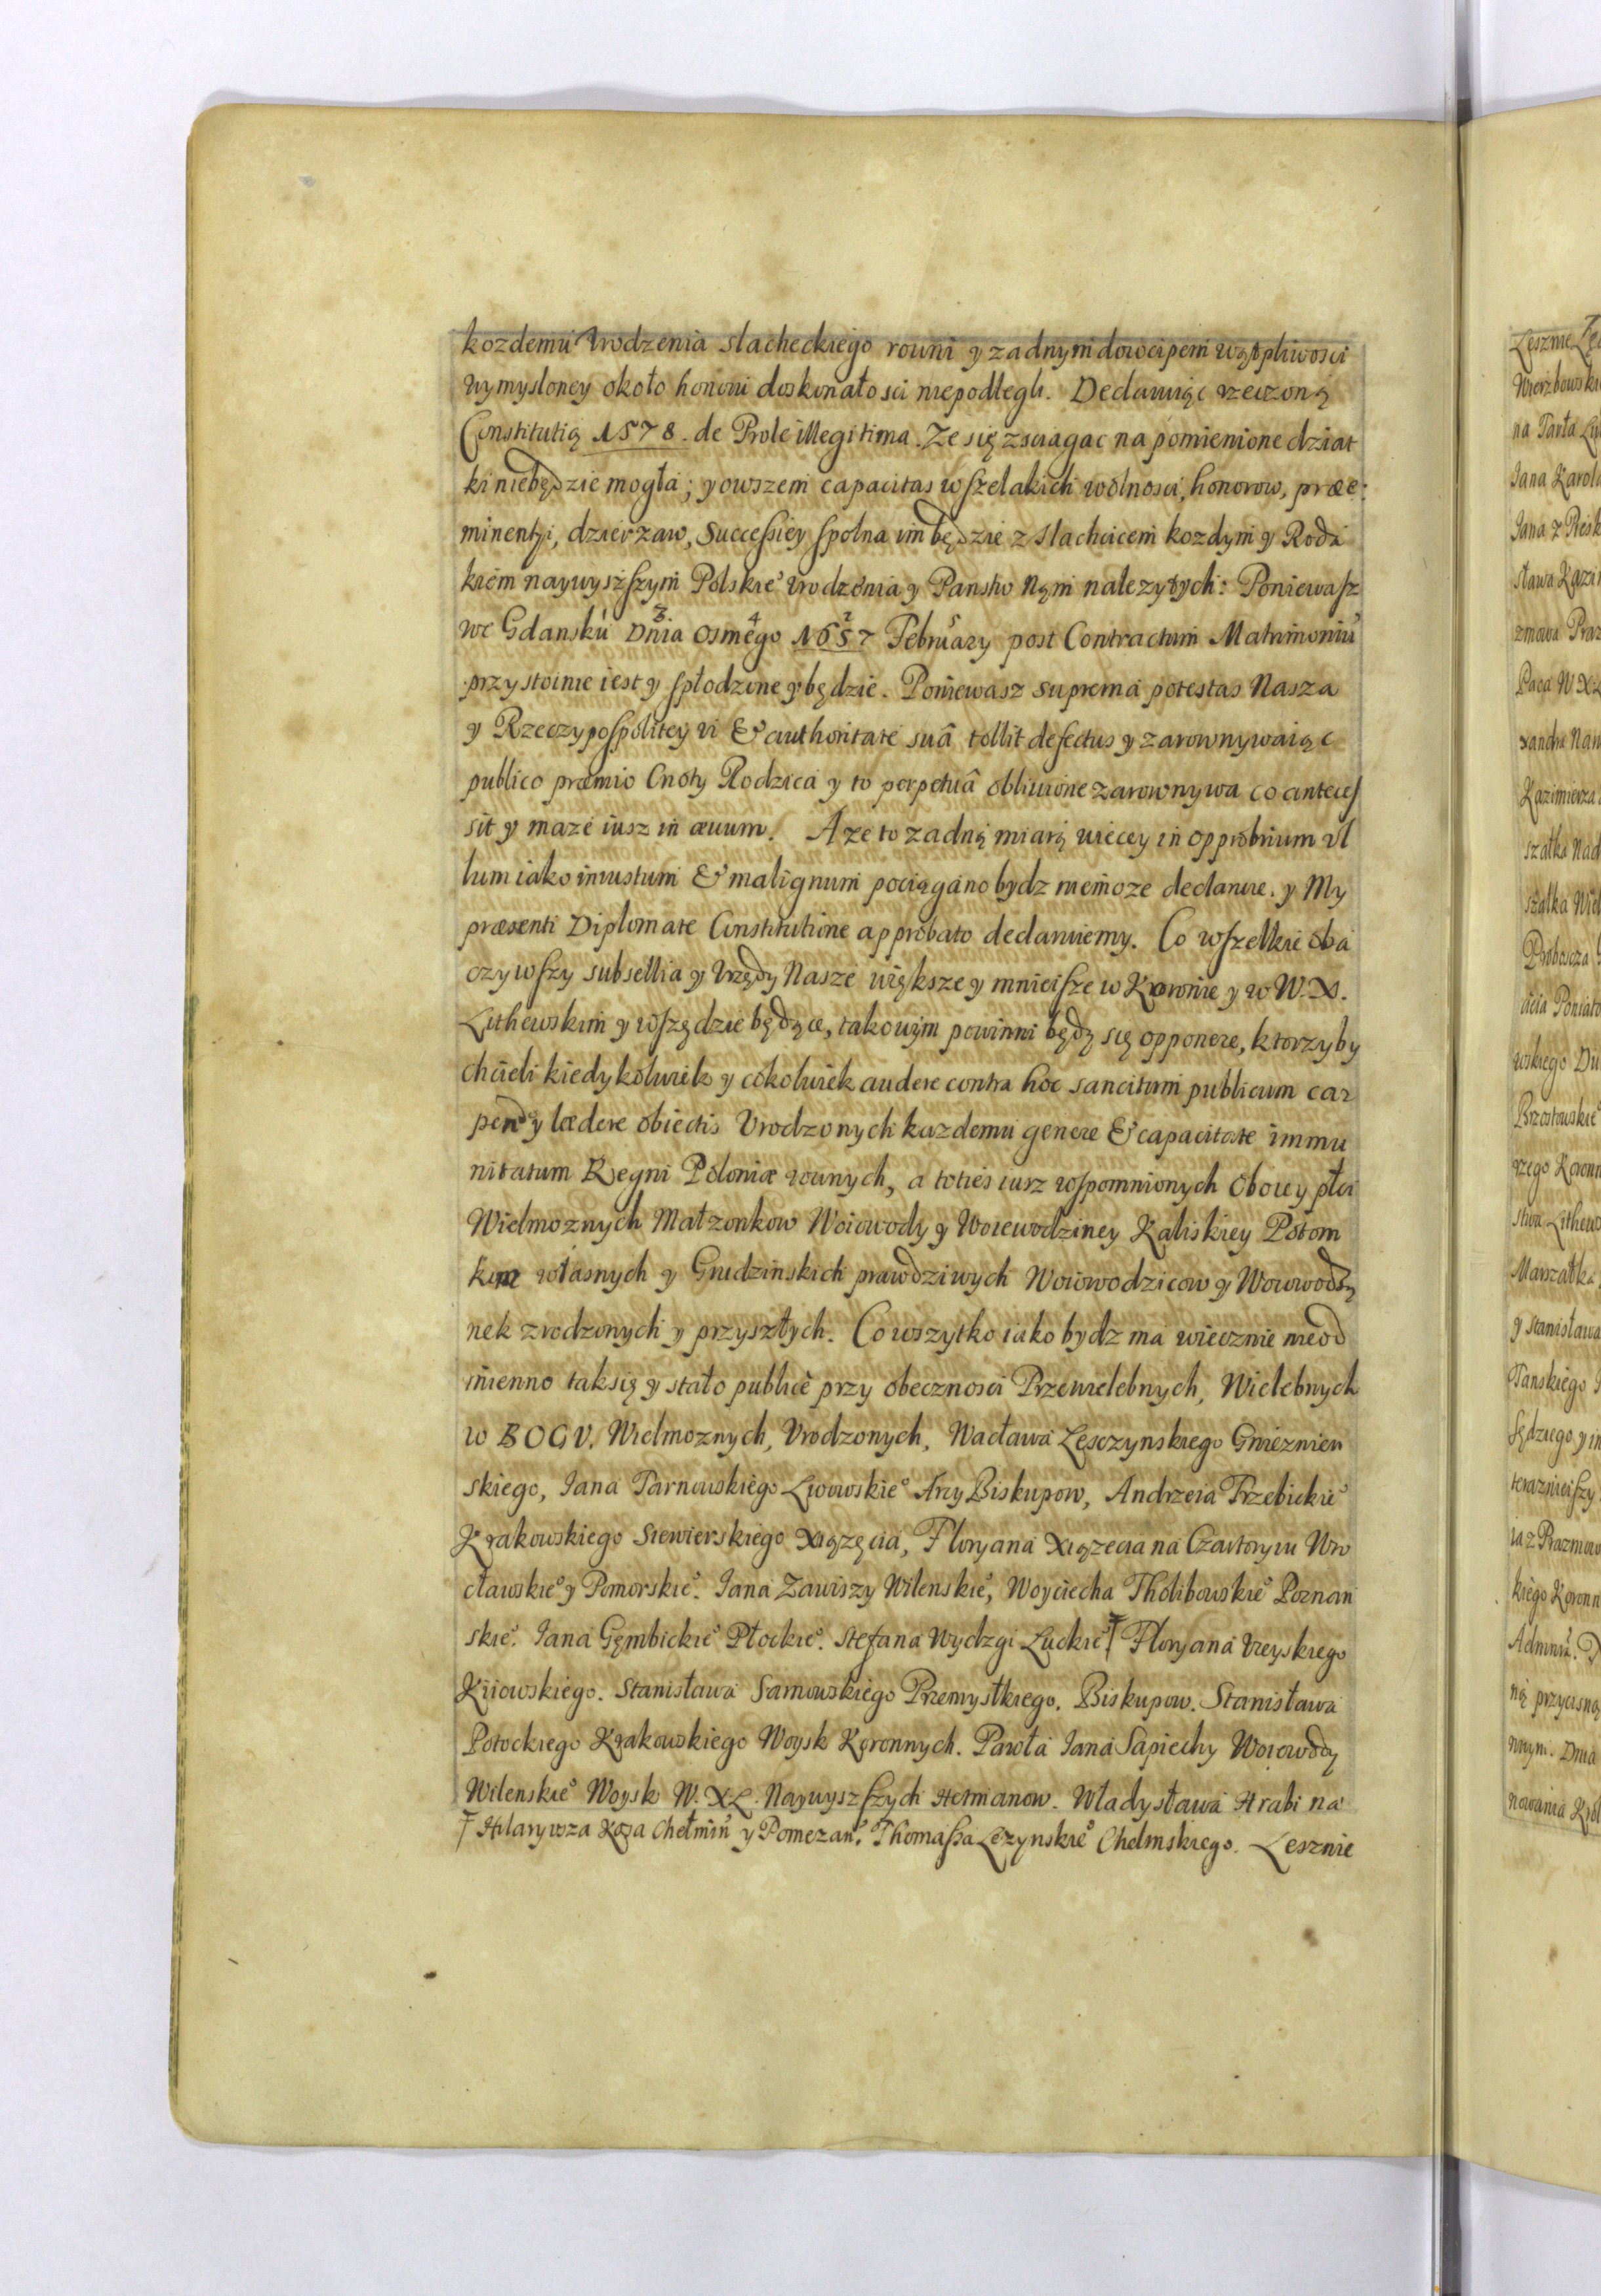 kozdemu Vrodzenia slacheckiego rowni y zadnym dowcipem wątpliwosci
wymysloney około honoru doskonałosci niepodlegli. Declaruiąc rzeczoną
Constitutią 1578. de Prole illegitima. Ze się zsciagac na pomienione dziat
ki niebędzie mogła; y owszem capacitas wszelakich wolnosci, honorow, præe:
minentyi, dzierzaw, Successiey spolna im będzie z slachcicem kozdym y Roda
kiem naywyszszym Polskieo Vrodzenia y Panstw Nąm nalezytych: Poniewasz
we Gdansku Dnia 3 osmego 4 1657 2 February 5 post Contractum Matrimoniu
przystoinie iest y spłodzone y będzie. Poniewasz suprema potestas Nasza
y Rzeczypospolitey vi & authoritate suâ tollit defectus y zarownywaiąc
publico præmio Cnoty Rodzica y to perpetuâ obliuione zarownywa co anteces
sit y maze iusz in ævum. A ze to zadną miarą wiecey in opprobrium vl
lum iako iniustum & malignum pociągano bydz niemoze declaruie. y My
præsenti Diplomate Constitutione approbato declaruiemy. Co wszelkie oba
czywszy subsellia y Vrzędy Nasze większe y mnieisze w Koronie y w W. X.
Lithewskim y wszędzie będące, takowym powinni będą się opponere, ktorzyby
chcieli kiedykolwiek y cokolwiek audere contra hoc sancitum publicum car
pere y lædere obiectis Vrodzonych kazdemu genere & capacitate immu
nitatum Regni Poloniæ rownych, a toties iusz wspomnionych oboiey płci
Wielmoznych Małzonkow Woiowody y Woiewodziney Kaliskiey Potom
kow własnych y Grudzinskich prawdziwych Woiowodzicow y Woiowodzą
nek zrodzonych y przyszłych. Co wszytko iako bydz ma wiecznie nieod
mienno tak się y stało publicè przy obecznosci Przewielebnych, Wielebnych
w BOGV, Wielmoznych, Vrodzonych, Wacława Lesczynskiego Gnieznien
skiego, Iana Tarnowskiego Lwowskieo Arcy Biskupow, Andrzeia Trzebickieo
Krakowskiego Siewierskiego Xiązęcia, Floryana Xiązecia na Czartorysku Wro
cławskieo y Pomorskieo. Iana Zawiszy Wilenskieo, Woyciecha Tholibowskieo Poznan
skieo. Iana Gęmbickieo Płockieo. Stefana Wydzgi Luckieo Ŧ Floryana Vzeyskiego
Kiiowskiego. Stanisława Sarnowskiego Przemyslkiego. Biskupow. Stanisława
Potockiego Krakowskiego Woysk Koronnych. Pawła Iana Sapiechy Woiowody
Wilenskieo Woysk W. X L. Naywyszszych Hetmanow. Władysława Hrabi na
Ŧ Hilarywsza Koza Chełmiń y Pomezań. Thomasza Lezynskieo Chelmskiego. Lesznie